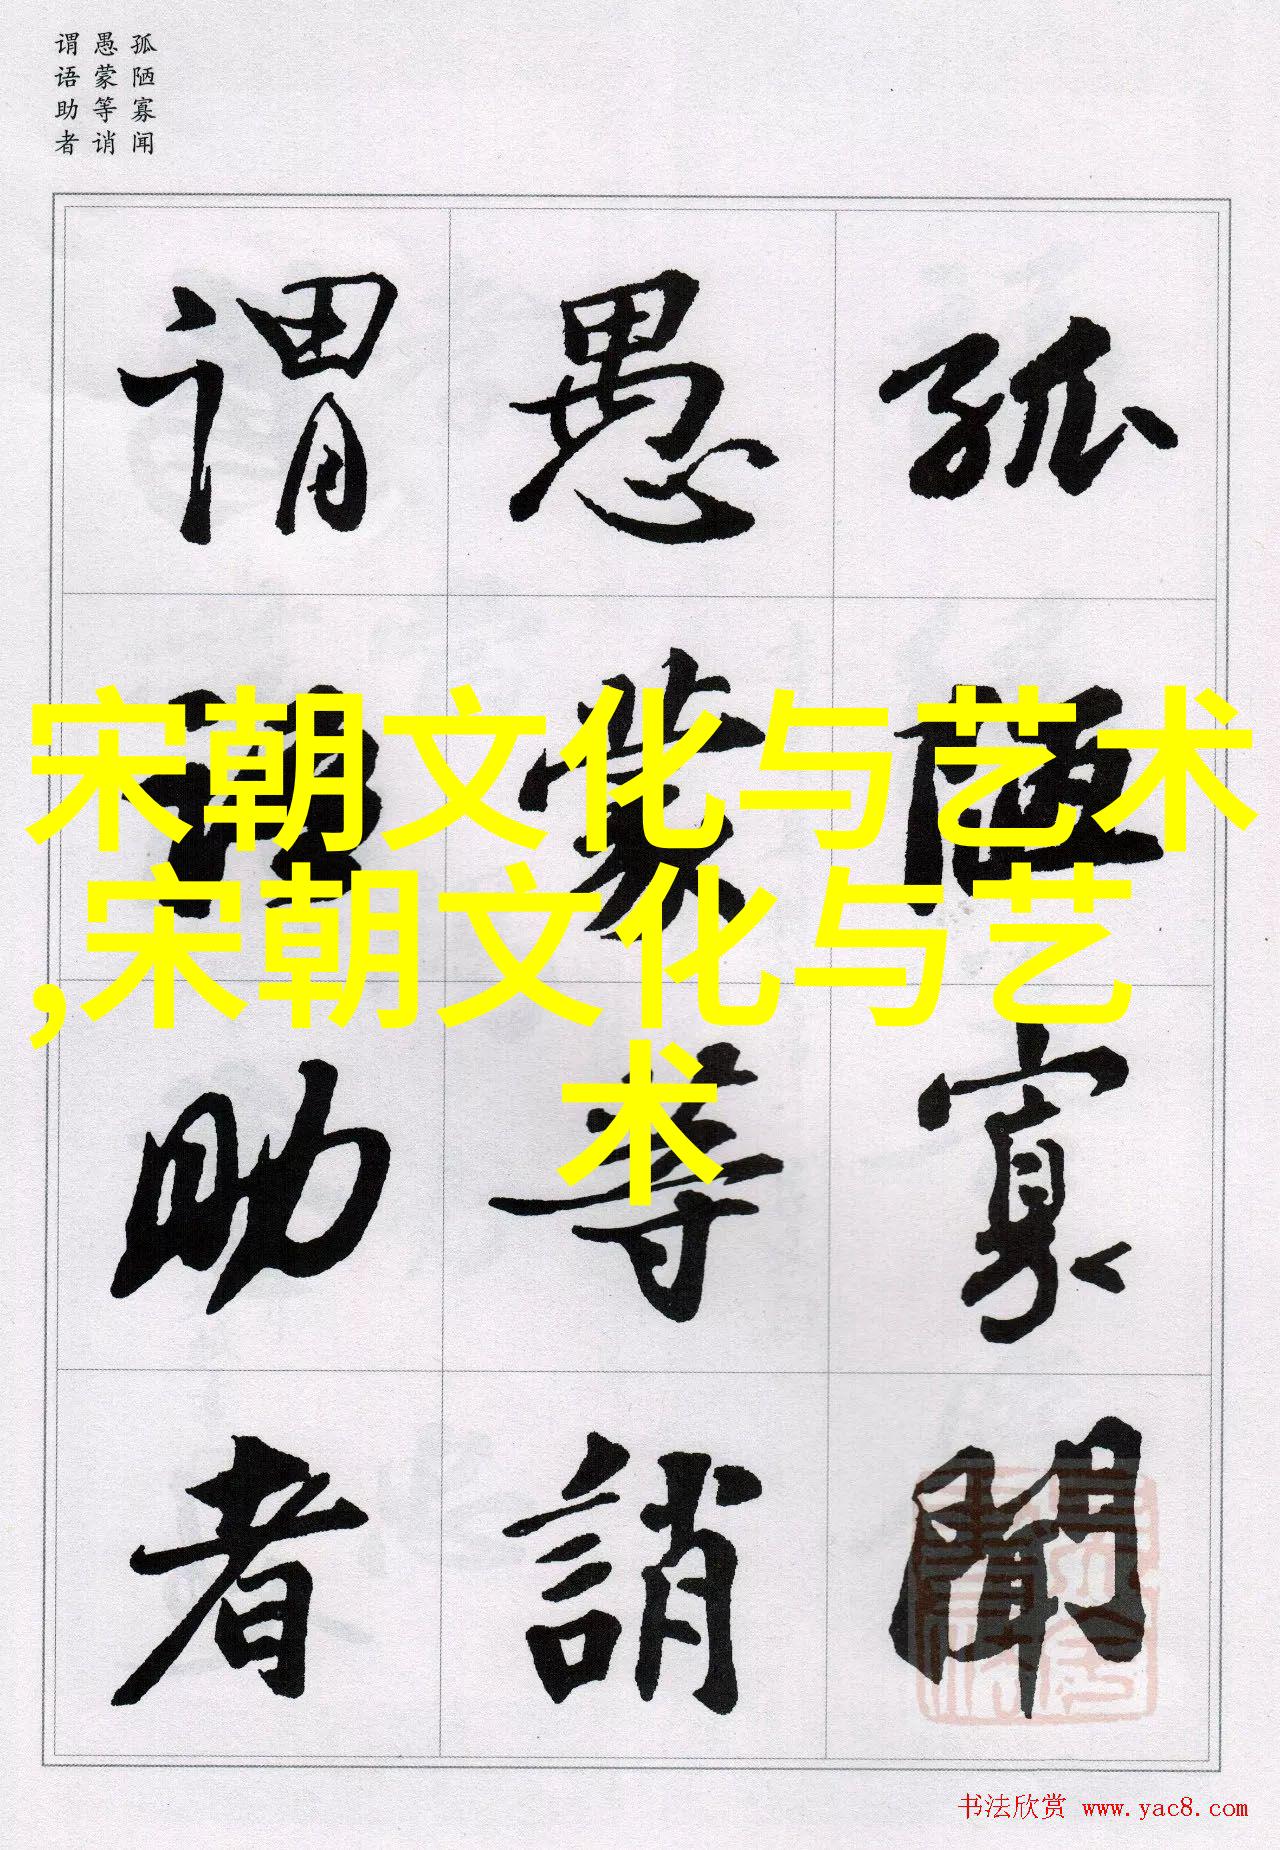 孤陋寡闻
愚蒙等诮
谓语助者
孤陋寡聞
愚蒙等誚
謂語助者
宋朝文化与艺术
,宋朝文化与艺
术
书法欣赏 www.yac8.com